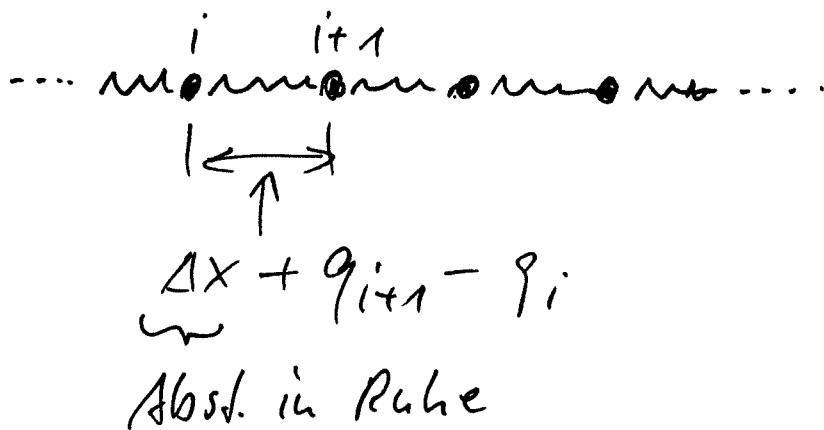 i i+1
Δx + q_{i+1} - q_i
Abst. in Ruhe